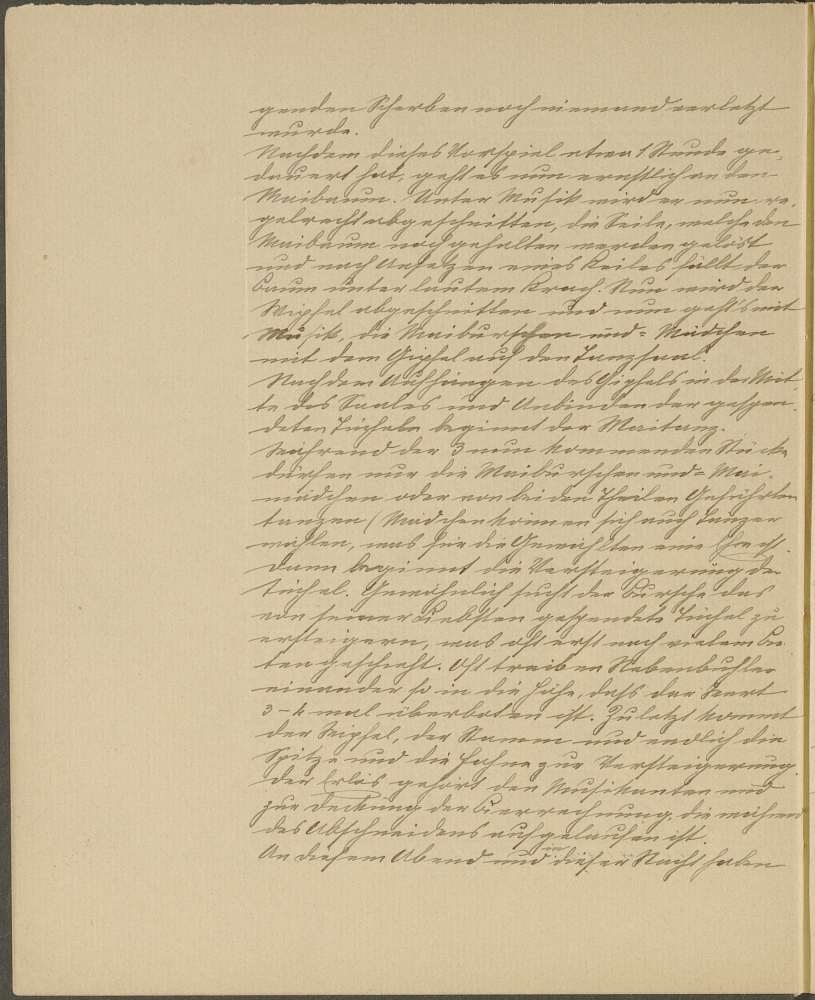 genden Scherben noch niemand verletzt
wurde.
Nachdem dieses Vorspiel etwa 1 Stunde ge-
dauert hat, geht es nun ernstlich an den
Maibaum. Unter Musik wird er nun re-
gelrecht abgeschnitten, die Seile, welche den
Maibaum noch gehalten werden gelöst
und nach Ansetzen eines Keiles fällt der
Baum unter lautem Krach. Nun wird der
Wipfel abgeschnitten und nun geht's mit
Musik, die Maiburschen und= Mädchen
mit dem Gipfel auf den Tanzsaal.
Nach dem Aufhängen des Gipfels in der Mit-
te des Saales und Anbinden der gespen-
deten Tücheln beginnt der Maitanz.
Während der 3 nun kommenden Stücke
dürfen nur die Maiburschen und= Mai-
mädchen oder von beiden Theilen Geführten
tanzen (Mädchen können sich auch Tänzer
wählen, was für die Gewählten eine Ehre ist.
Dann beginnt die Versteigerung der
Tüchel. Gewöhnlich sucht der Bursche das
von seiner Liebsten gespendete Tüchel zu
ersteigern, was oft erst nach vielem Bie-
ten geschieht. Oft treiben Nebenbuhler
einander so in die Höhe, dass der Wert
3-4 mal überboten ist. Zuletzt kommt
der Wipfel, der Stamm und endlich die
Spitze und die Fahne zur Versteigerung.
Der Erlös gehört den Musikanten und
zur Deckung der Bierrechnung, die während
des Abschneidens aufgelaufen ist.
An diesem Abend und in dieser Nacht haben